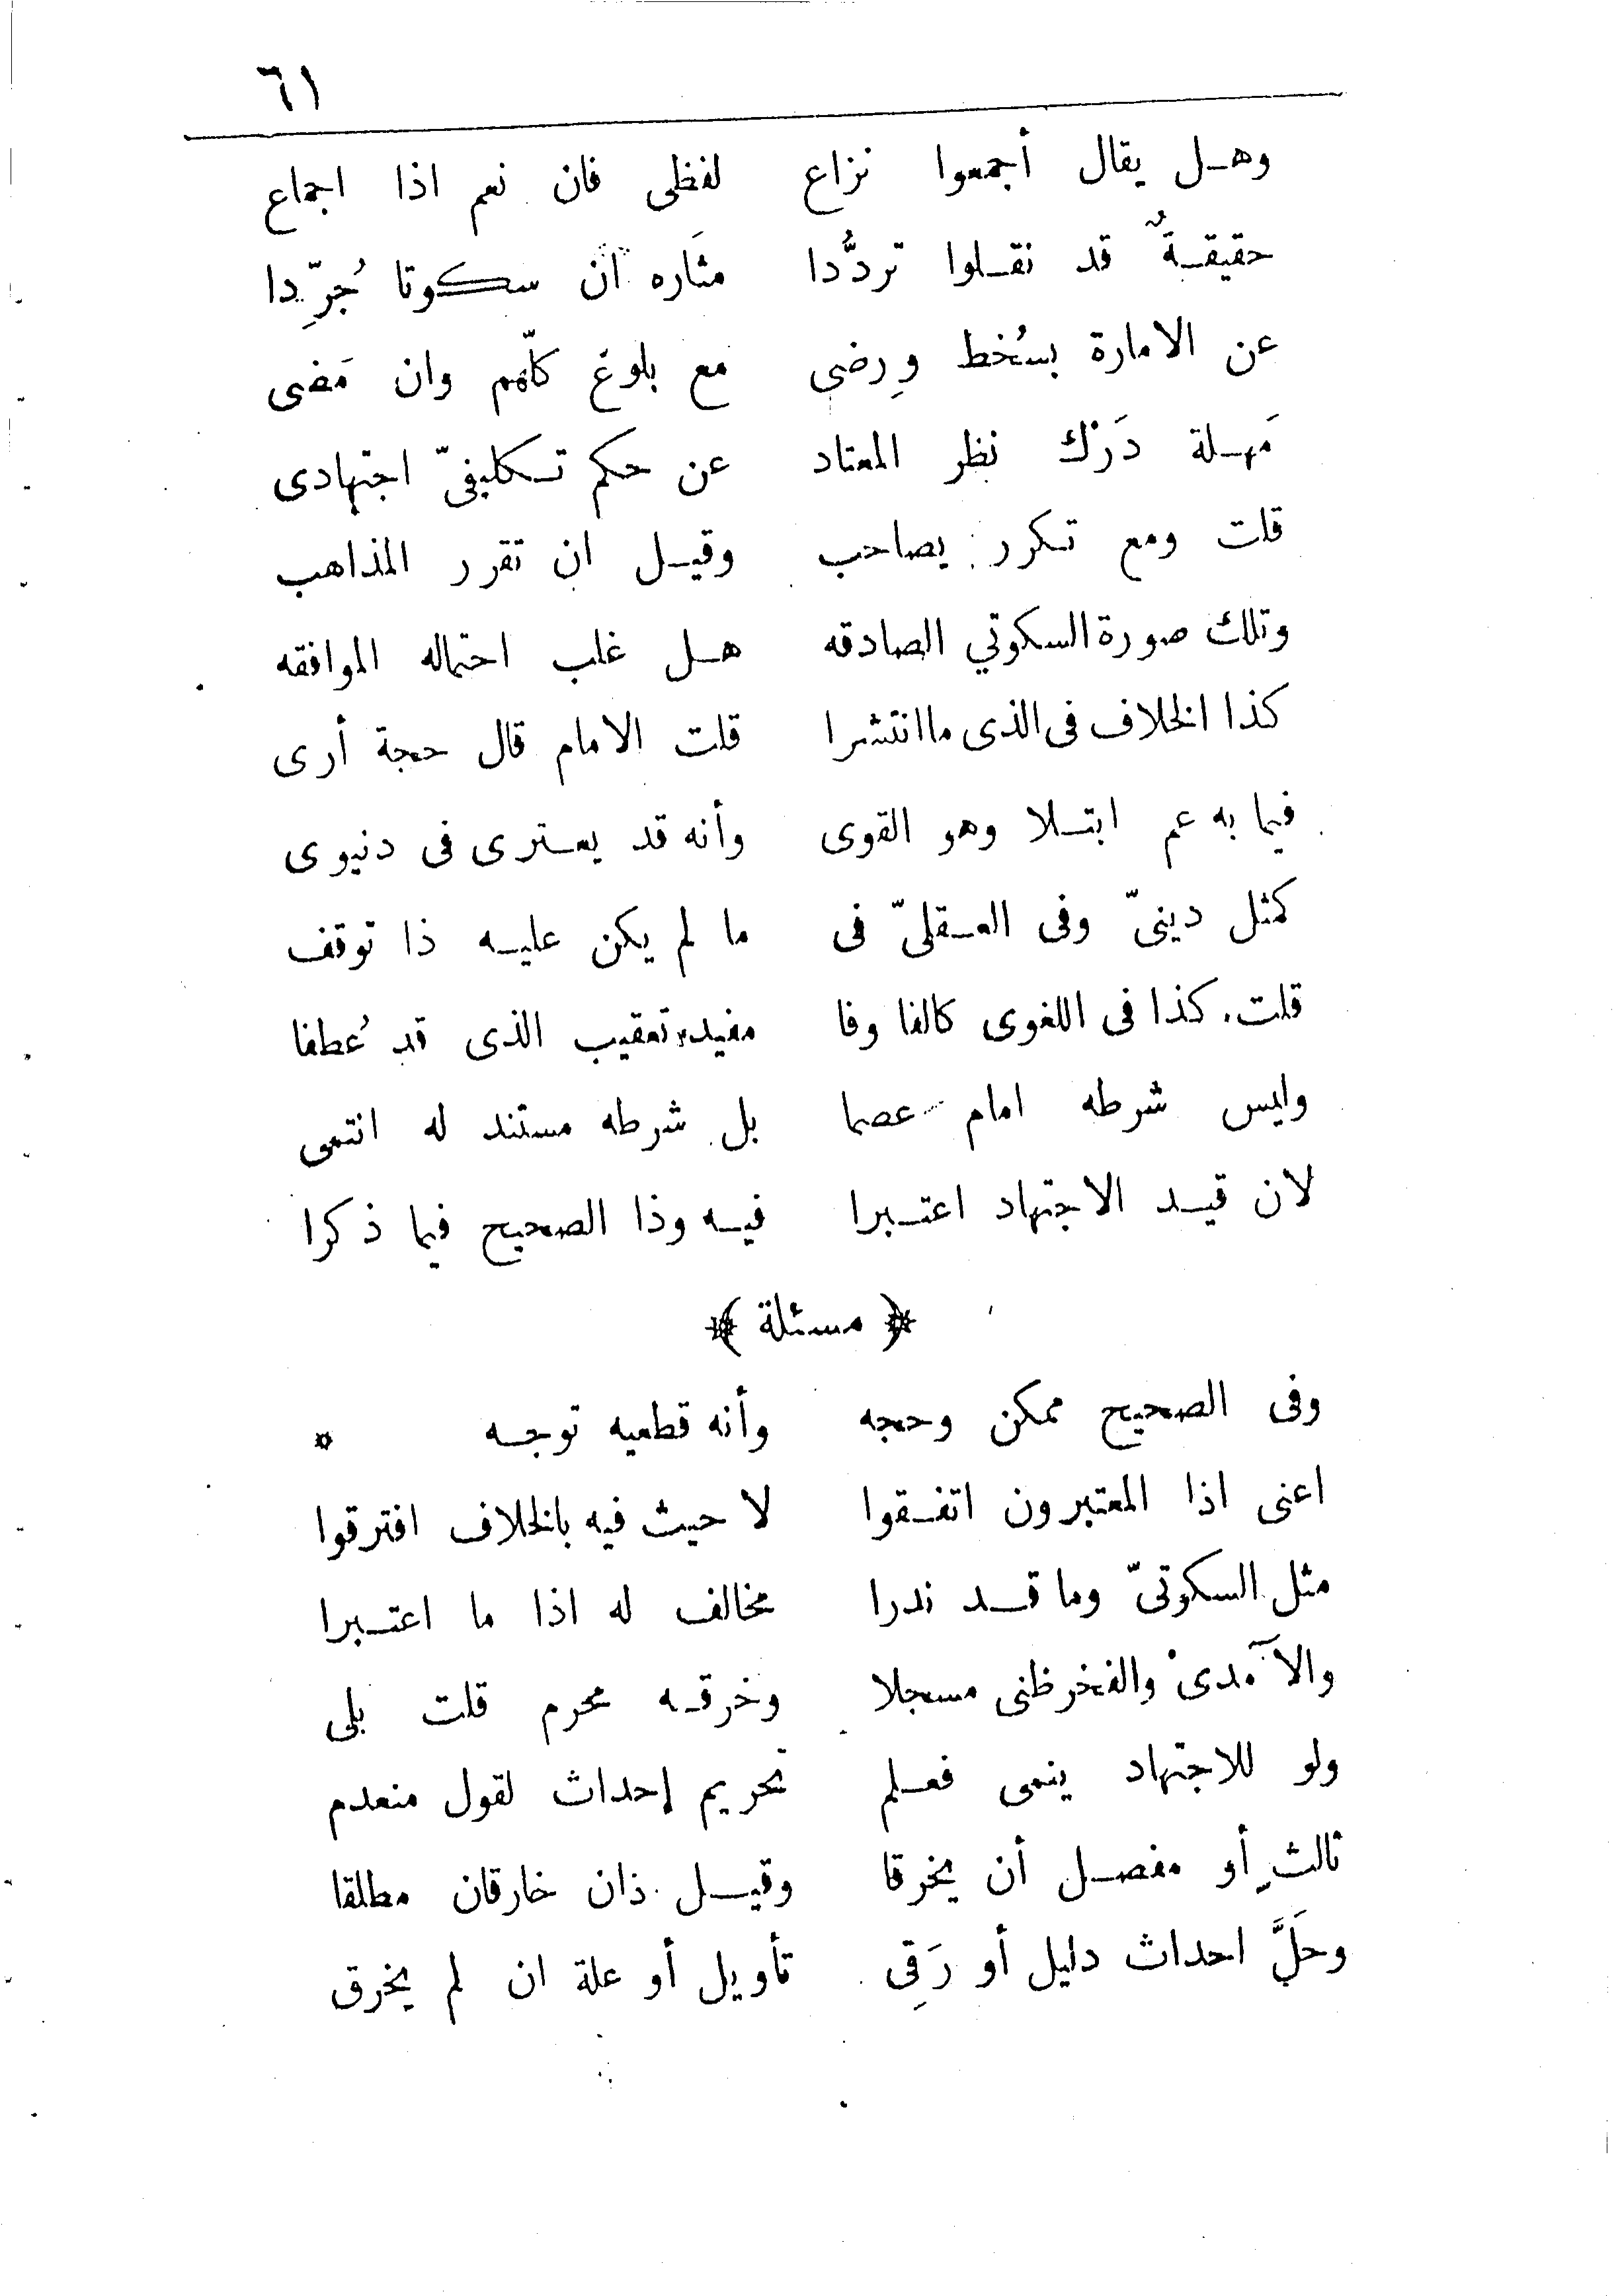 ٦١
وهل يقال أجمعوا نزاع لفظى فان نعم اذا اجماع
حقيقةً قد نقلوا تردُّدا مثَاره ان سكوتا جُرِّدا
عن الامارة بسُخط وِرضى مع بلوغ كلّهم وان مَضى
مَهلة دَرْك نظر المعتاد عن حكم تكليفىّ اجتهادى
قلت ومع تكرر يصاحب وقيل ان تقرر المذاهب
وتلك صورة السكوتي الصادقه هل غلب احتماله الموافقه
كذا الخلاف فى الذى ما انتشرا قلت الامام قال حجة أرى
فيما به عم ابتلا وهو القوى وأنه قد يعترى فى دنيوى
كمثل دينىّ وفى العقلىّ فى ما لم يكن عليه ذا توقف
قلت كذا فى اللغوى كالفا وفا مفيدة تعقيب الذى قد عُطفا
وليس شرطه امام عصما بل شرطه مستند له انتمى
لان قيد الاجتهاد اعتبرا فيه وذا الصحيح فيما ذكرا
﴿ مسئلة ﴾
وفى الصحيح ممكن وحجه وأنه قطعيه توجه *
اعنى اذا المعتبرون اتفقوا لا حيث فيه بالخلاف افترقوا
مثل السكوتىّ وما قد ندرا مخالف له اذا ما اعتبرا
والآمدىْ والفخر ظنى مسجلا وخرقه محرم قلت بلى
ولو للاجتهاد ينمى فعلم تحريم إحداث لقول منعدم
ثالثٍ أو مفصل أن يخرقا وقيل ذان خارقان مطلقا
وحَلَّ احداث دليل أو رَقِى تأويل أو علة ان لم يخرق